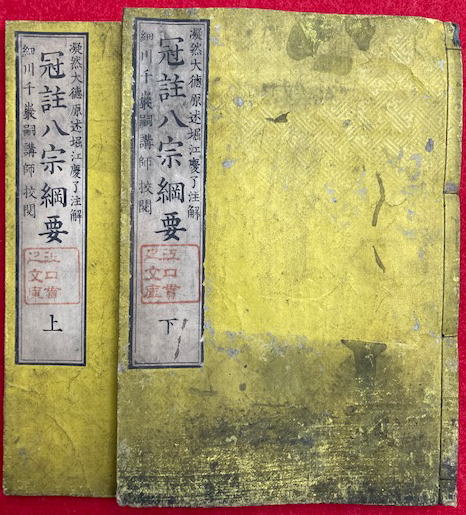 凝然大德原述堀江慶了注解
冠註八宗綱要
細川千巖嗣講師挍閱
下
江口
之文庫
凝然大德原述堀江慶了注解
冠註八宗綱要
細川千巖嗣講師挍閱
上
江口
之文庫